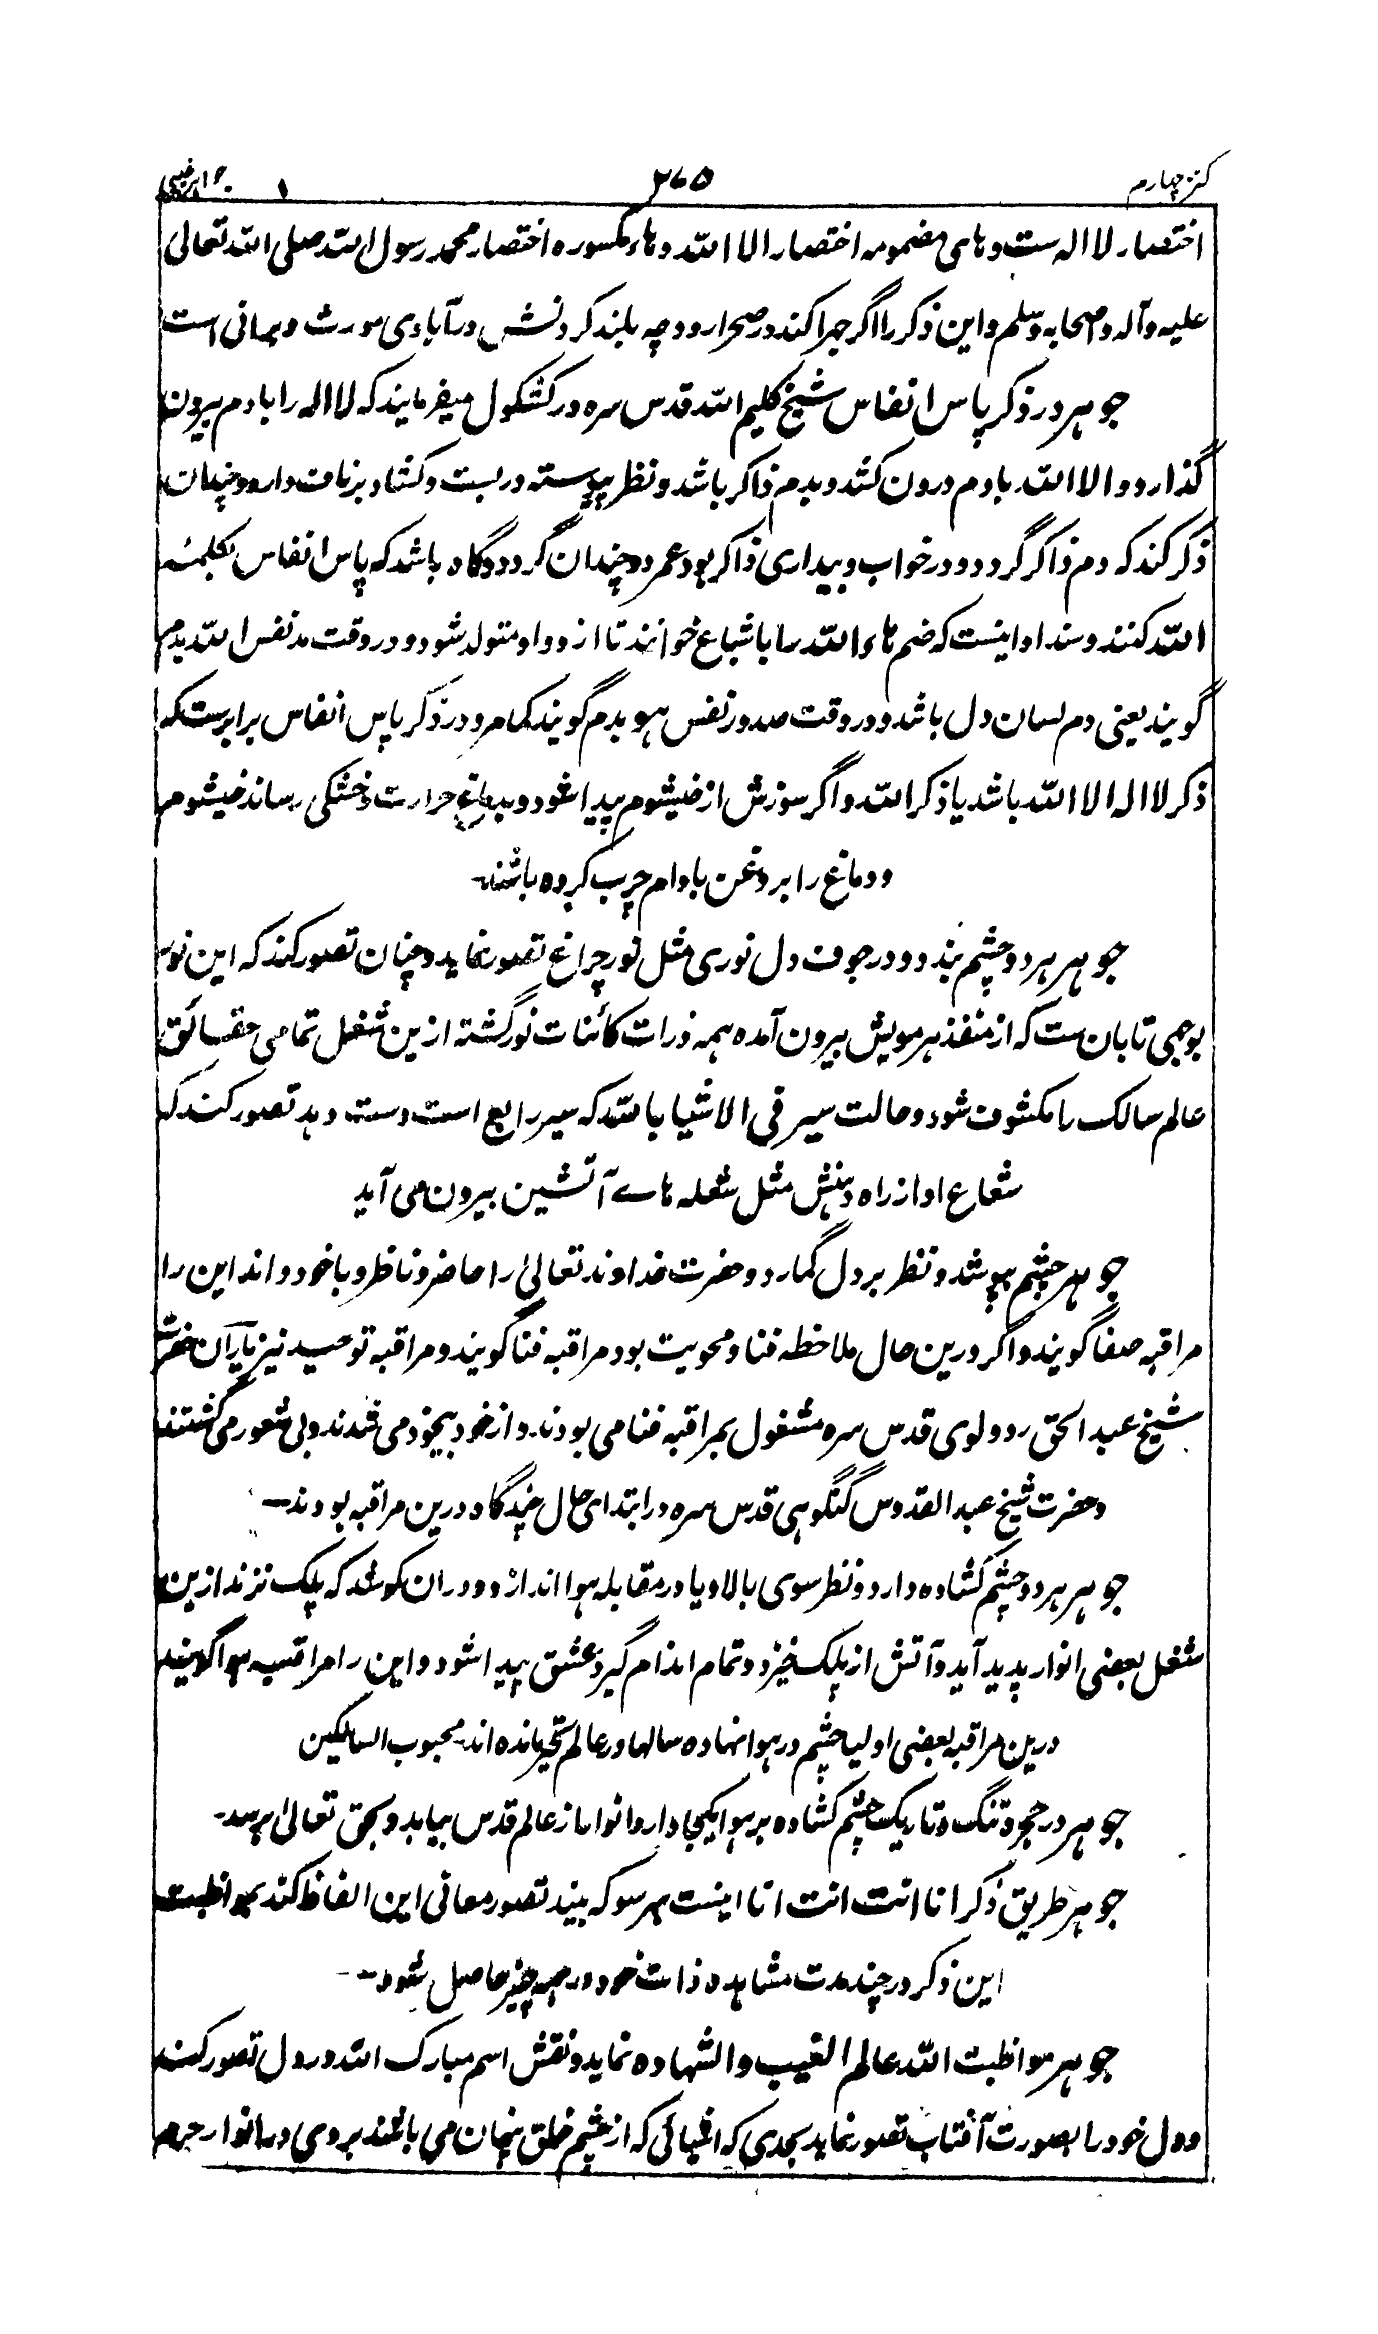 کنز چهارم ۲۶۵ جواهر غیبی
اختصار لا اله ست و های مضمومه اختصار الا الله و هاء مکسوره اختصار محمد رسول الله صلی الله تعالی
علیه و آله و اصحابه وسلم و این ذکر را اگر جهرا کند در صحرا رود چه بلند کردنش در آبادی مورث ویرانی است
جوهر در ذکر پاس انفاس شیخ کلیم الله قدس سره در کشکول میفرمایند که لا اله را با دم بیرون
گذارد و الا الله با دم درون کشد و بدم ذاکر باشد و نظر پیوسته در بست و کشاد بر ناف دارد و چندان
ذکر کند که دم ذاکر گردد و در خواب و بیداری ذاکر بود عمر دو چندان گردد و گاه باشد که پاس انفاس بکلمهٔ
الله کنند و سند او اینست که ضم هاء الله را باشباع خوانند تا از و واو متولد شود و در وقت مد نفس الله بدم
گویند یعنی دم لسان دل باشد و در وقت صدور نفس هو بدم گویند کما مر و در ذکر پاس انفاس برابرست که
ذکر لا اله الا الله باشد یا ذکر الله و اگر سوزش از خیشوم پیدا شود و بدماغ حرارت و خشکی رساند خیشوم
و دماغ را بروغن بادام چرب کرده باشند
جوهر هر دو چشم بندد و در جوف دل نوری مثل نور چراغ تصور نماید و چنان تصور کند که این نور
بوجهی تابان ست که از منفذ هر مویش بیرون آمده همه ذرات کائنات نور گشته ازین شغل تمامی حقائق
عالم سالک را مکشوف شود و حالت سیر فی الاشیا بالله که سیر رابع است دست دهد تصور کند که
شعاع او از راه دهنش مثل شعله هاے آتشین بیرون می آید
جوهر چشم بپوشد و نظر بر دل گمارد و حضرت خداوند تعالیٰ را حاضر و ناظر و با خود داند این را
مراقبه صفا گویند و اگر درین حال ملاحظه فنا و محویت بود مراقبه فنا گویند و مراقبه توحید نیز یاران حضرت
شیخ عبد الحق ردولوی قدس سره مشغول بمراقبه فنا می بودند و از خود بیخود می شدند و بی شعور می گشتند
و حضرت شیخ عبد القدوس گنگوهی قدس سره در ابتدای حال چندگاه درین مراقبه بودند
جوهر هر دو چشم کشاده دارد و نظر سوی بالا و یا در مقابله هوا اندازد و در ان کوشد که پلک نزند ازین
شغل بعضی انوار پدید آید و آتش از پلک خیزد و تمام اندام گیرد عشق پیدا شود و این را مراقبه هوا گویند
درین مراقبه بعضی اولیا چشم در هوا نهاده سالها در عالم تحیر مانده اند محبوب السالکین
جوهر در حجره تنگ و تاریک چشم کشاده بر هوا یکجا دارد انوار از عالم قدس بیابد و بحق تعالیٰ برسد
جوهر طریق ذکر انا انت انت انا اینست بهر سو که بیند تصور معانی این الفاظ کند بمواظبت
این ذکر در چند مدت مشاهده ذات خود در همه چیز حاصل شود
جوهر مواظبت الله عالم الغیب والشهاده نماید و نقش اسم مبارک الله در دل تصور کند
و دل خود را بصورت آفتاب تصور نماید بحدی که اشیائی که از چشم خلق پنهان می باشند بروی در انوار جرم